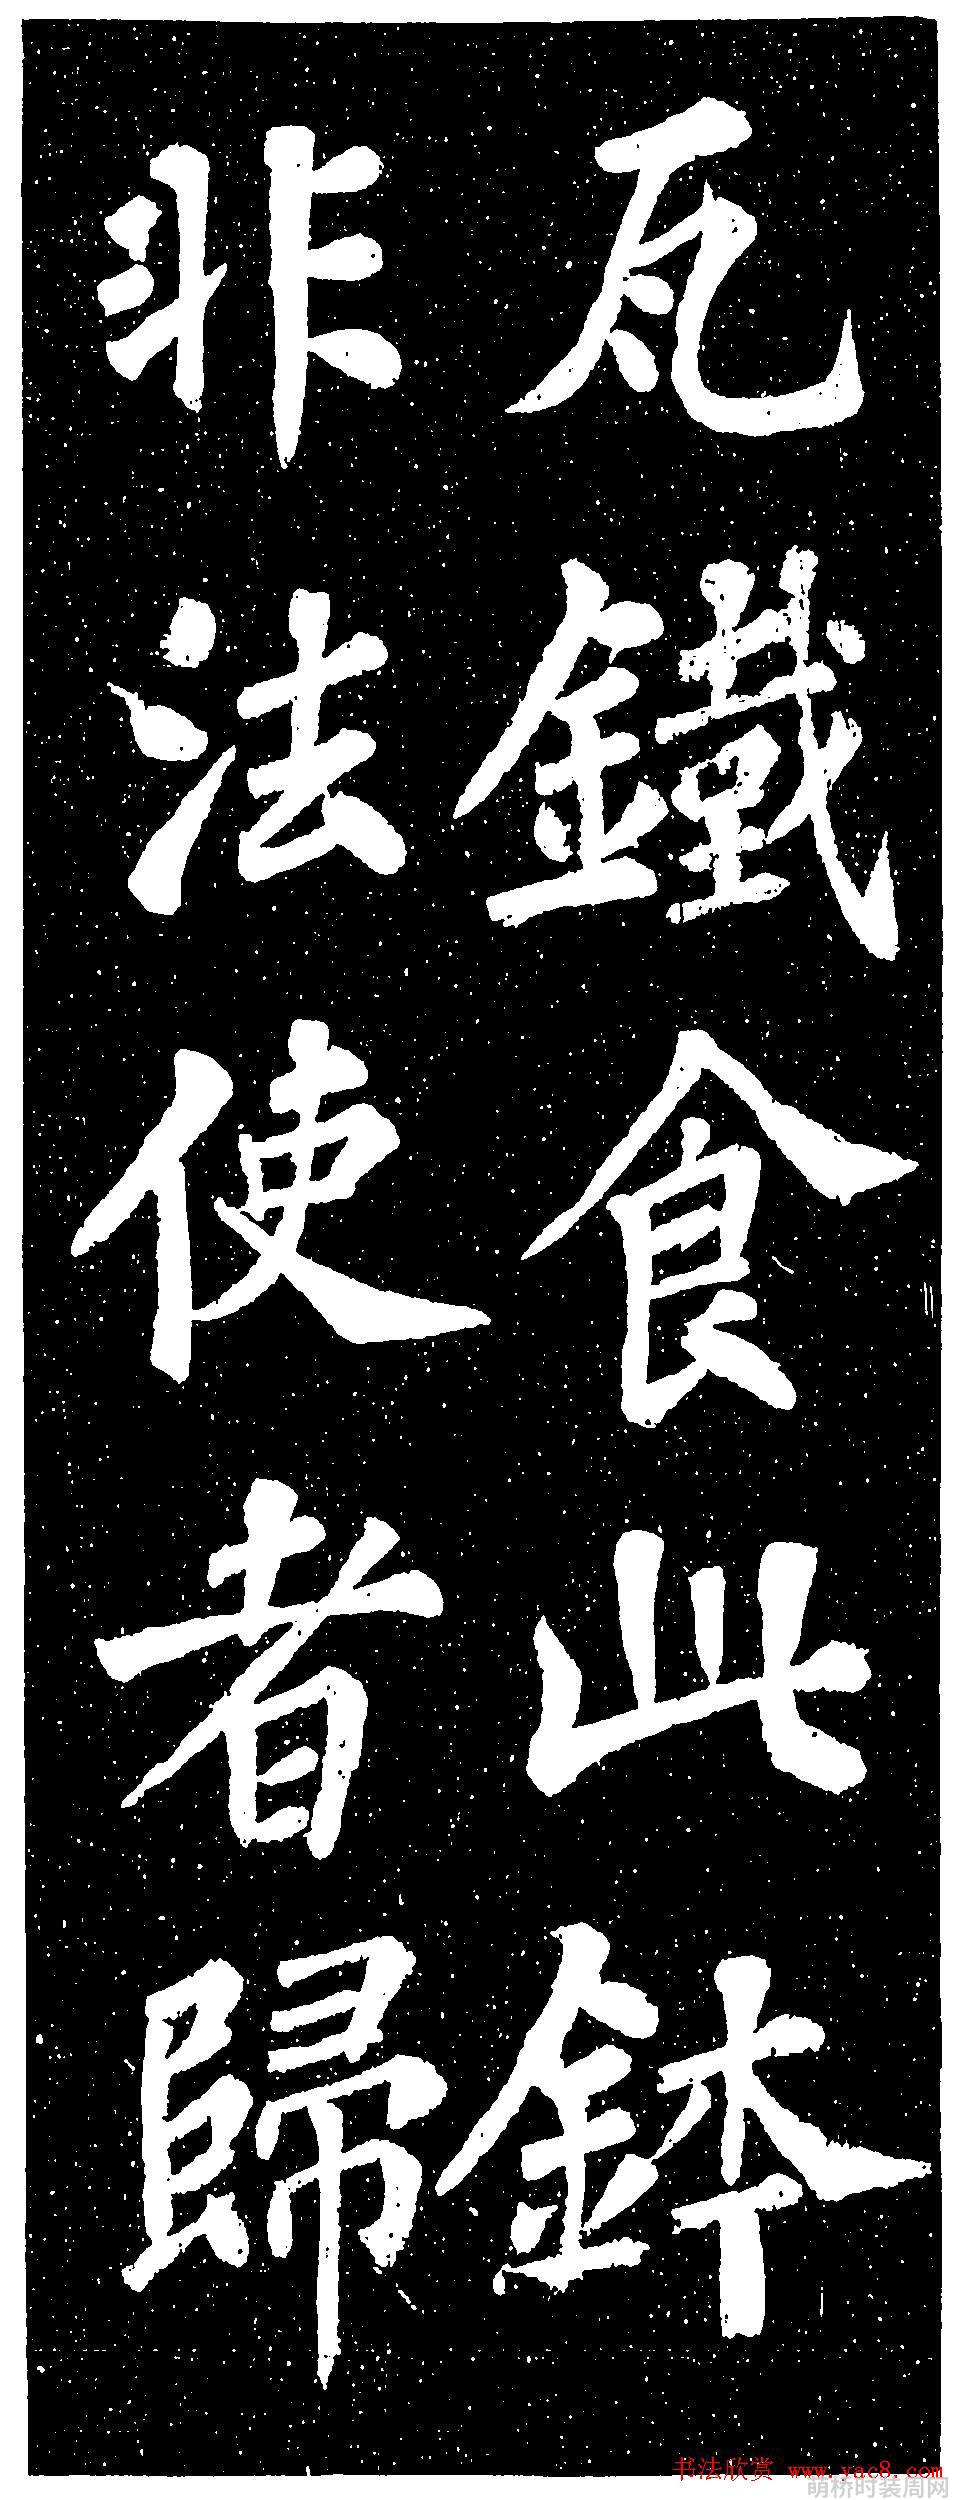 瓦鐵食此鉢
非法使者歸
书法欣赏 www.yac8.com
萌桥时装周网